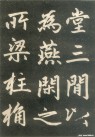 堂三間以
為燕閑之
所梁柱桷